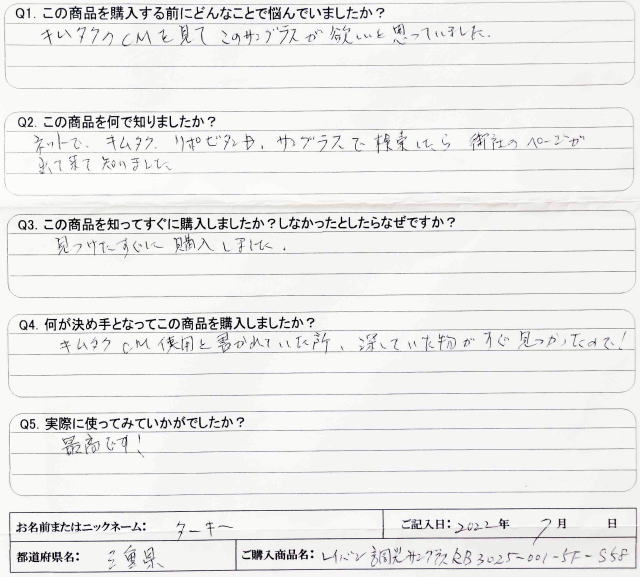 Q1. この商品を購入する前にどんなことで悩んでいましたか？
キムタクCMを見てこのサングラスが欲しいと思っていました。
Q2. この商品を何で知りましたか？
ネットで、キムタク、リポビタンD、サングラスで検索したら御社のページが
出て来て知りました。
Q3. この商品を知ってすぐに購入しましたか？しなかったとしたらなぜですか？
見つけたすぐに購入しました。
Q4. 何が決め手となってこの商品を購入しましたか？
キムタクCM使用と書かれていた所、探していた物がすぐ見つかったので！
Q5. 実際に使ってみていかがでしたか？
最高です！
お名前またはニックネーム： ターキー ご記入日： 2022年 7月 日
都道府県名： 三重県 ご購入商品名： レイバン調光サングラスRB3025-001-5F-S58